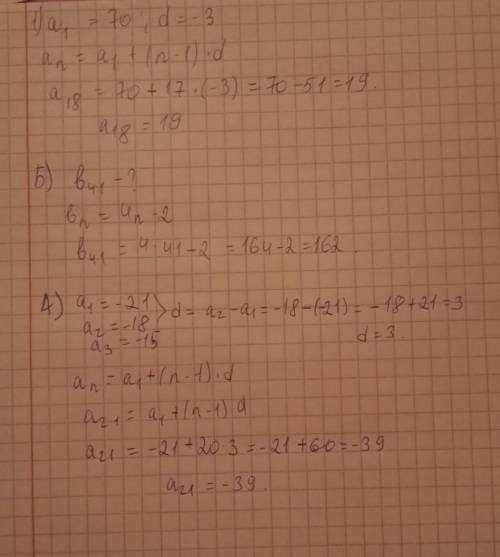 1) a₁ = 70, d = -3
aₙ = a₁ + (n-1)·d
a₁₈ = 70 + 17·(-3) = 70 - 51 = 19.
a₁₈ = 19
5) в₄₁ - ?
вₙ = 4ₙ - 2
в₄₁ = 4·41 - 2 = 164 - 2 = 162.
4) a₁ = -21
a₂ = -18 > d = a₂ - a₁ = -18 - (-21) = -18 + 21 = 3
a₃ = -15 d = 3.
aₙ = a₁ + (n-1)·d
a₂₁ = a₁ + (n-1)·d
a₂₁ = -21 + 20·3 = -21 + 60 = -39
a₂₁ = -39.